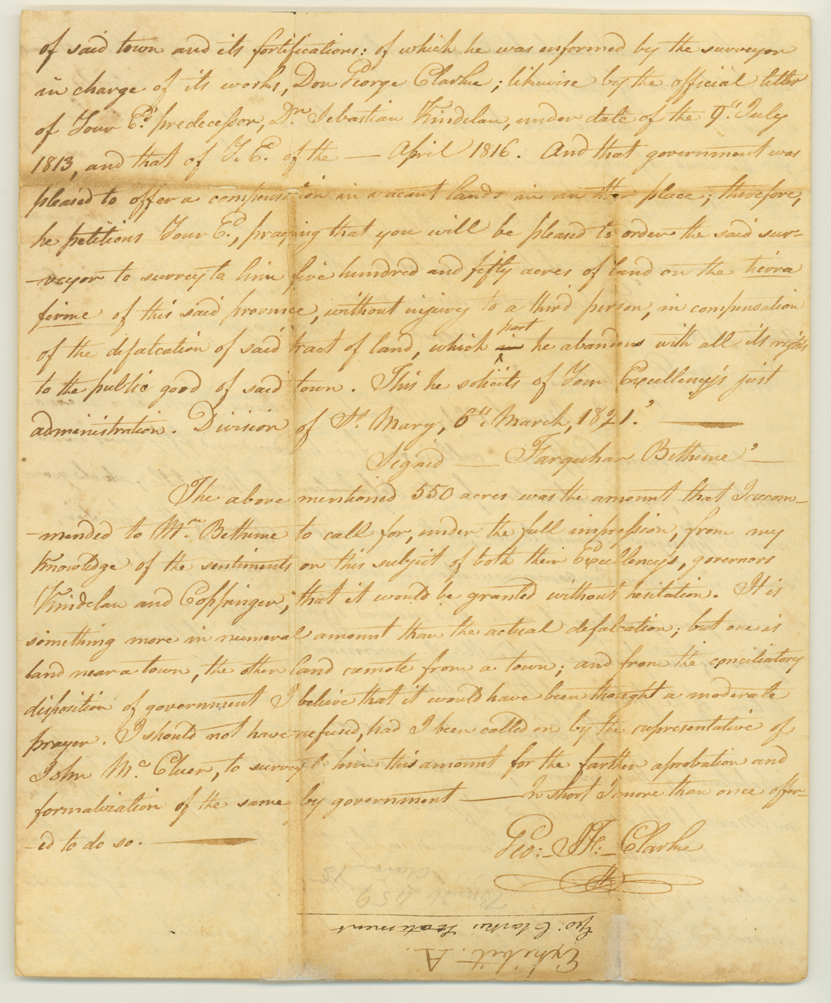 of said town and its fortifications: of which he was informed by the surveyor
in charge of its works, Don George Clarke; likewise by the official letter
of Your E.ys predecessor, Dn. Sebastian Kindelan, under date of the 9th July
1813, and that of Y. E. of the — April 1816. And that government was
pleased to offer a compensation in vacant lands in an other place; therefore,
he petitions Your E.y, praying that you will be pleased to order the said sur-
-veyor to survey to him five hundred and fifty acres of land on the tierra
firme of this said province, without injury to a third person, in compensation
of the defalcation of said tract of land, which part he abandons with all its rights
to the public good of said town. This he solicits of Your Excellency's just
administration. Division of St. Mary, 6th March, 1821."
Signed — Farquhar Bethune" —
The above mentioned 550 acres was the amount that I recom-
-mended to Mr. Bethune to call for, under the full impression, from my
knowledge of the sentiments on this subject of both their Excellency's, governors
Kindelan and Coppinger, that it would be granted without hesitation. It is
something more in numeral amount than the actual defalcation; but one is
land near a town, the other land remote from a town; and from the conciliatory
disposition of government I believe that it would have been thought a moderate
prayer. I should not have refused, had I been called on by the representative of
John Mc. Cluer, to survey to him this amount for the farther aprobation and
formalization of the same by government — In short I more than once offer-
-ed to do so. —
Geo: J. F. Clarke
Geo: Clarkes Statement
Exhibit. A.